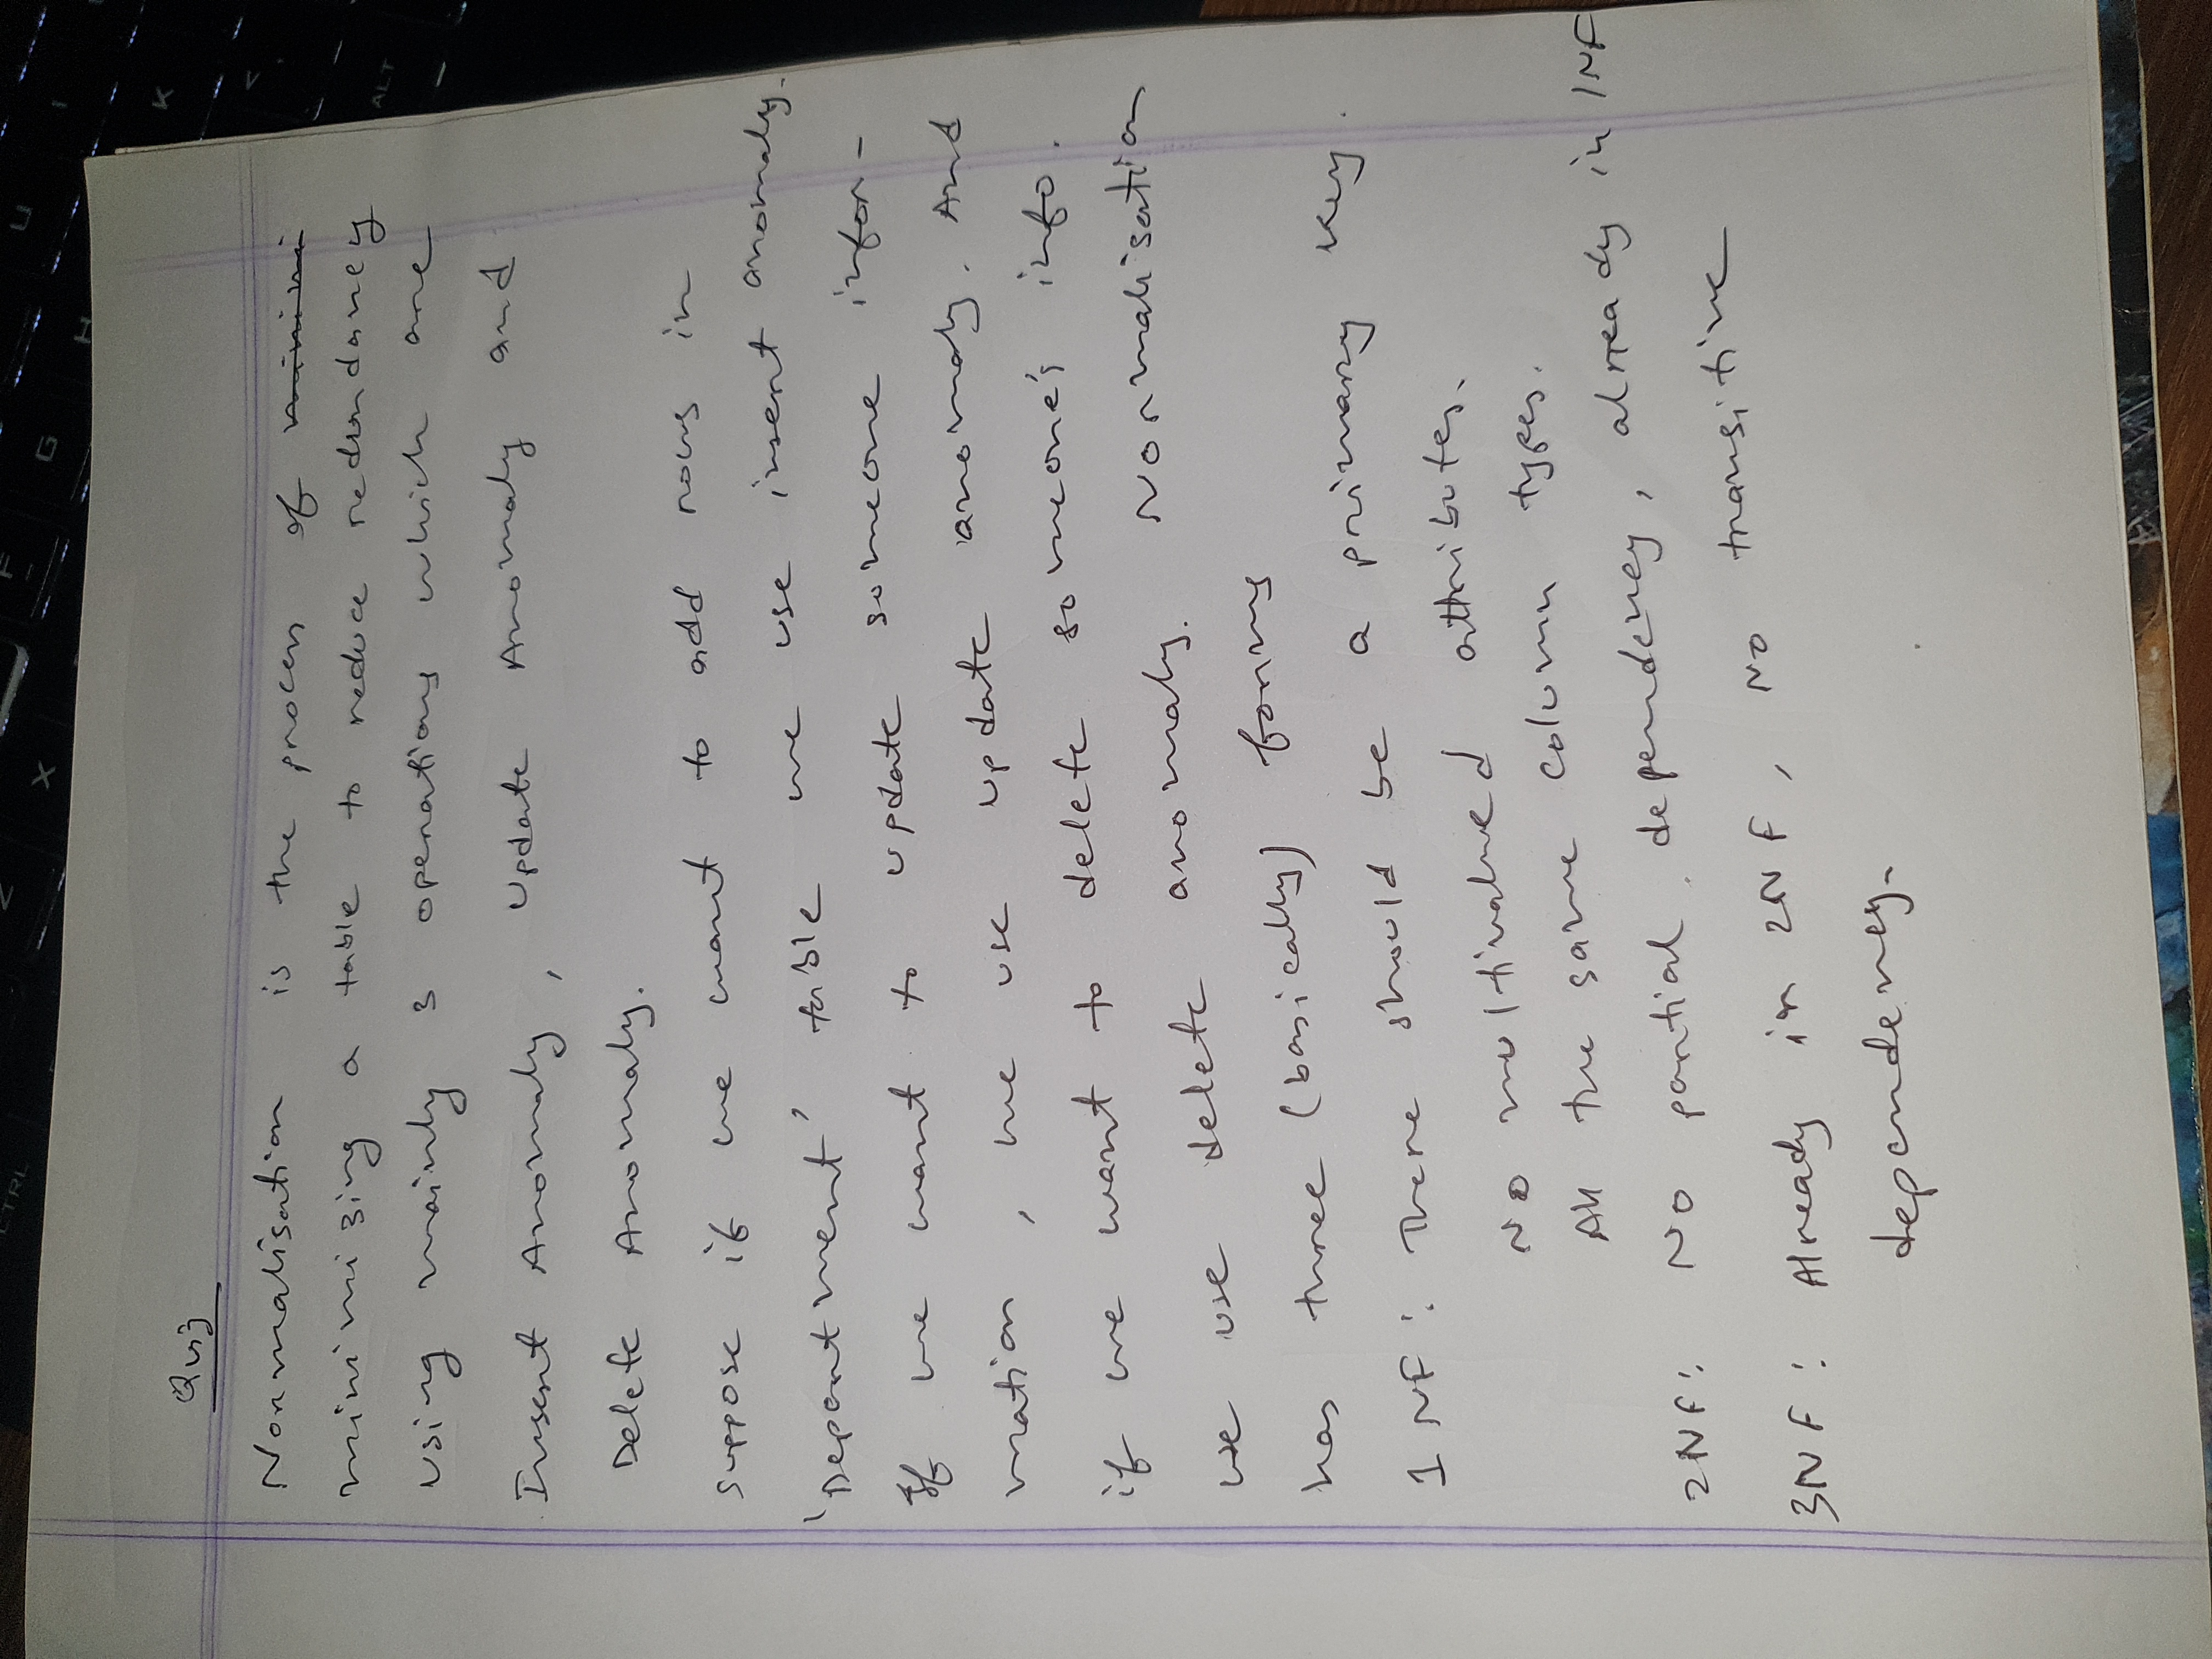 CTRL
Z
X
F
G
H
U
I
K
<
ALT
Quiz
Normalisation is the process of minimi
minimizing a table to reduce redundancy
using mainly 3 operations which are
Insert Anomaly, Update Anomaly and
Delete Anomaly.
Suppose if we want to add rows in
'Department' table we use insert anomaly.
If we want to update someone infor-
mation, we use update anomaly. And
if we want to delete someone's info.
we use delete anomaly. Normalisation
has three (basically) forms
1 NF: There should be a primary key.
No multivalued attributes.
All the same column types.
2NF: No partial dependency, already in 1NF
3NF: Already in 2NF, No transitive
dependency.